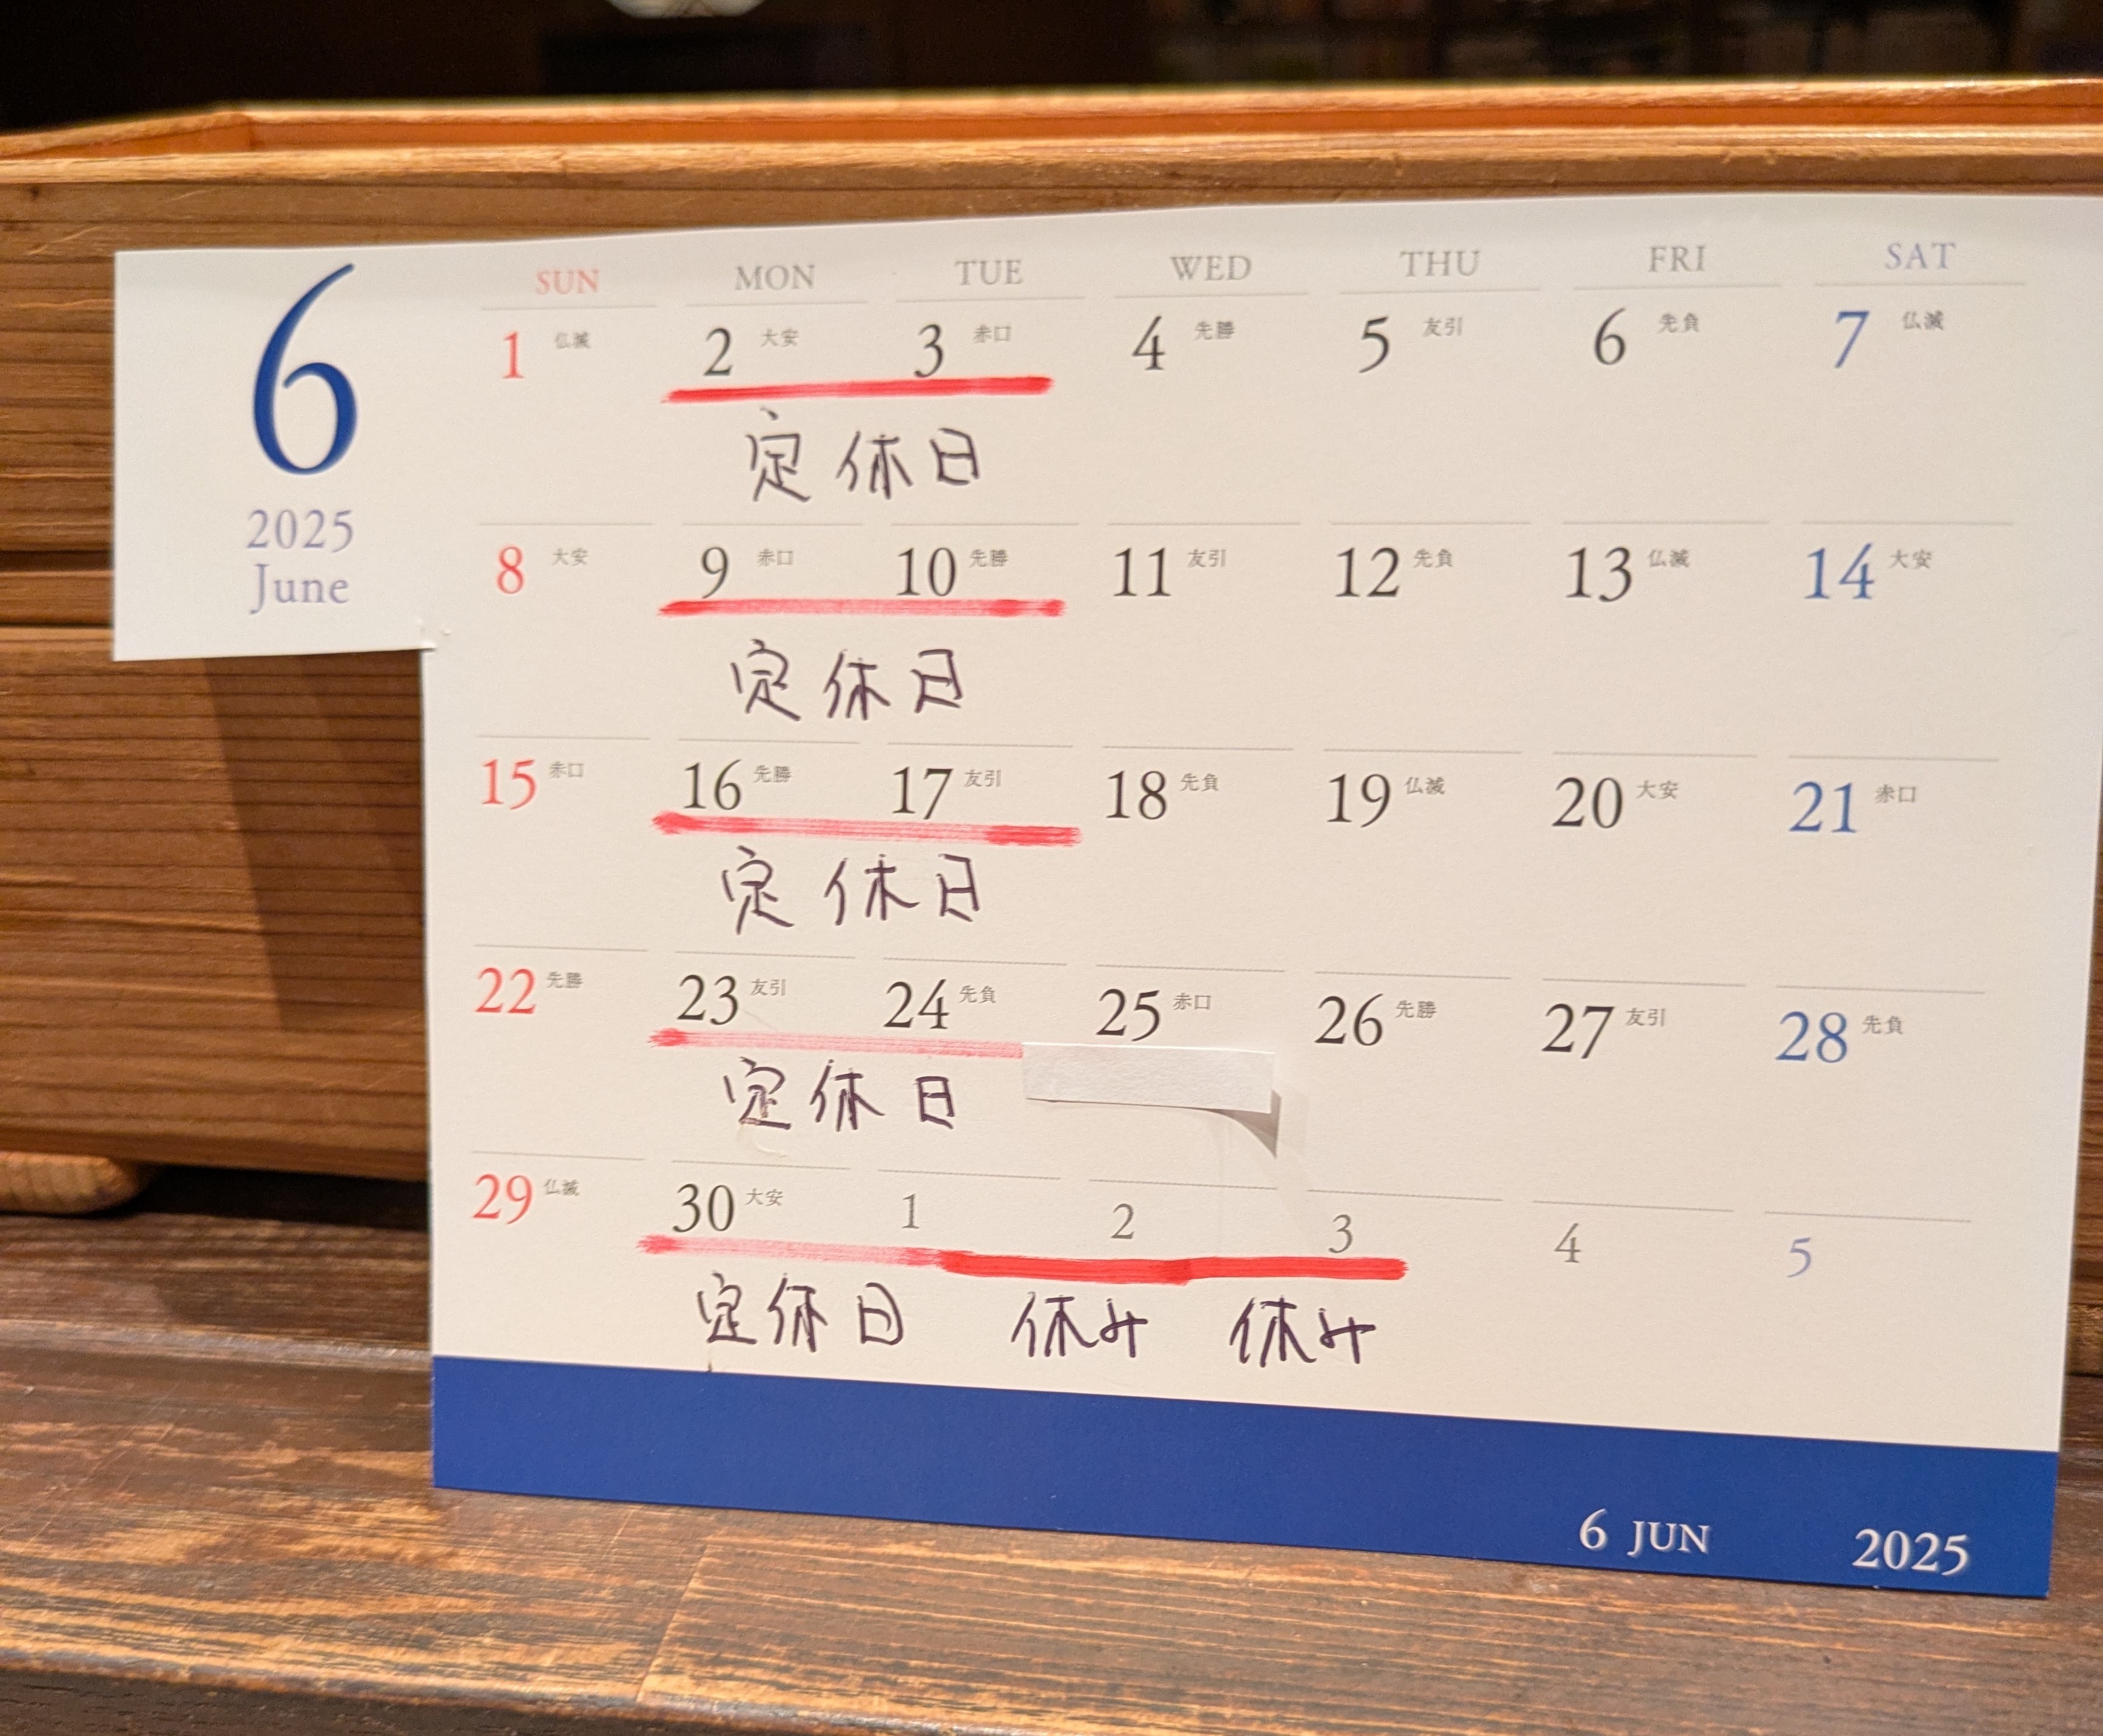 6
2025
June
SUN MON TUE WED THU FRI SAT
1 仏滅 2 大安 3 赤口 4 先勝 5 友引 6 先負 7 仏滅
定休日
8 大安 9 赤口 10 先勝 11 友引 12 先負 13 仏滅 14 大安
定休日
15 赤口 16 先勝 17 友引 18 先負 19 仏滅 20 大安 21 赤口
定休日
22 先勝 23 友引 24 先負 25 赤口 26 先勝 27 友引 28 先負
定休日
29 仏滅 30 大安 1 2 3 4 5
定休日 休み 休み
6 JUN 2025